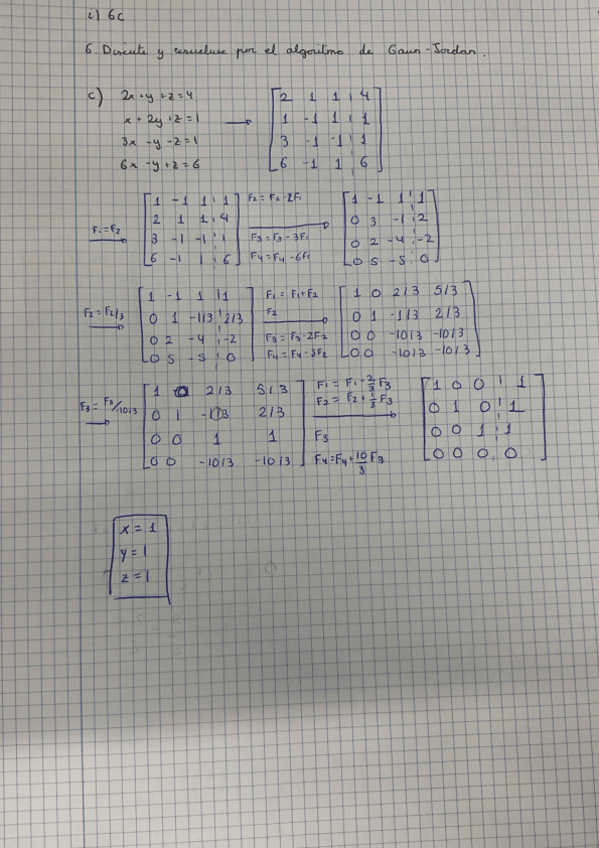 c) 6c
6. Discute y resuelve por el algoritmo de Gauss-Jordan.
c) 2x + y + z = 4
x + 2y + z = 1
3x - y - z = 1
6x - y + z = 6
→
2 1 1 4
1 -1 1 1
3 -1 -1 1
6 -1 1 6
F₁ = F₂
1 -1 1 1
2 1 1 4
3 -1 -1 1
6 -1 1 6
F₂ = F₂ - 2F₁
F₃ = F₃ - 3F₁
F₄ = F₄ - 6F₁
1 -1 1 1
0 3 -1 2
0 2 -4 -2
0 5 -5 0
F₂ = F₂/3
1 -1 1 1
0 1 -1/3 2/3
0 2 -4 -2
0 5 -5 0
F₁ = F₁ + F₂
F₂
F₃ = F₃ - 2F₂
F₄ = F₄ - 5F₂
1 0 2/3 5/3
0 1 -1/3 2/3
0 0 -10/3 -10/3
0 0 -10/3 -10/3
F₃ = F₃/10/3
1 0 2/3 5/3
0 1 -1/3 2/3
0 0 1 1
0 0 -10/3 -10/3
F₁ = F₁ - 2/3 F₃
F₂ = F₂ + 1/3 F₃
F₃
F₄ = F₄ + 10/3 F₃
1 0 0 1
0 1 0 1
0 0 1 1
0 0 0 0
x = 1
y = 1
z = 1